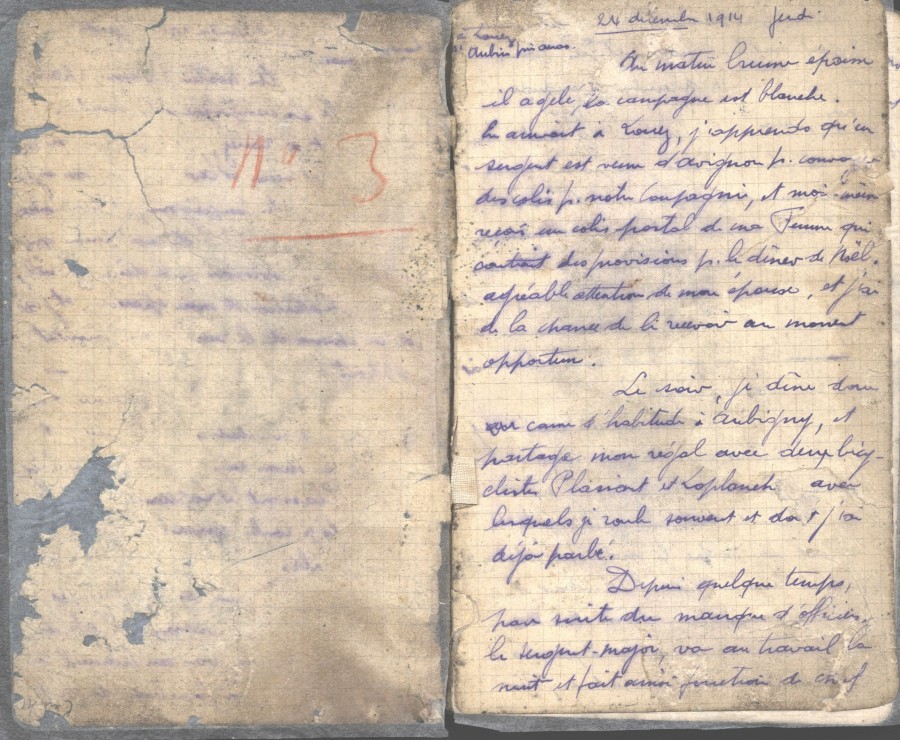 N° 3
24 décembre 1914 Jeudi.
à Louez
Aubin
Au matin brume épaisse
il a gelé, la campagne est blanche.
En arrivant à Louez, j'apprends qu'un
sergent est venu d'Avignon p. convoyer
des colis p. notre Compagnie, et moi-même
reçois un colis postal de ma Femme qui
contient des provisions p. le dîner de Noël.
agréable attention de mon épouse, et j'ai
de la chance de le recevoir au moment
opportun.
Le soir, je dîne dans
comme d'habitude à Aubigny, et
partage mon régal avec deux bicy-
clistes Plansont et Laplanch avec
lesquels je roule souvent et dont j'ai
déjà parlé.
Depuis quelque temps,
par suite du manque d'officiers,
le sergent-major, va au travail la
nuit et fait ainsi fonction de chef